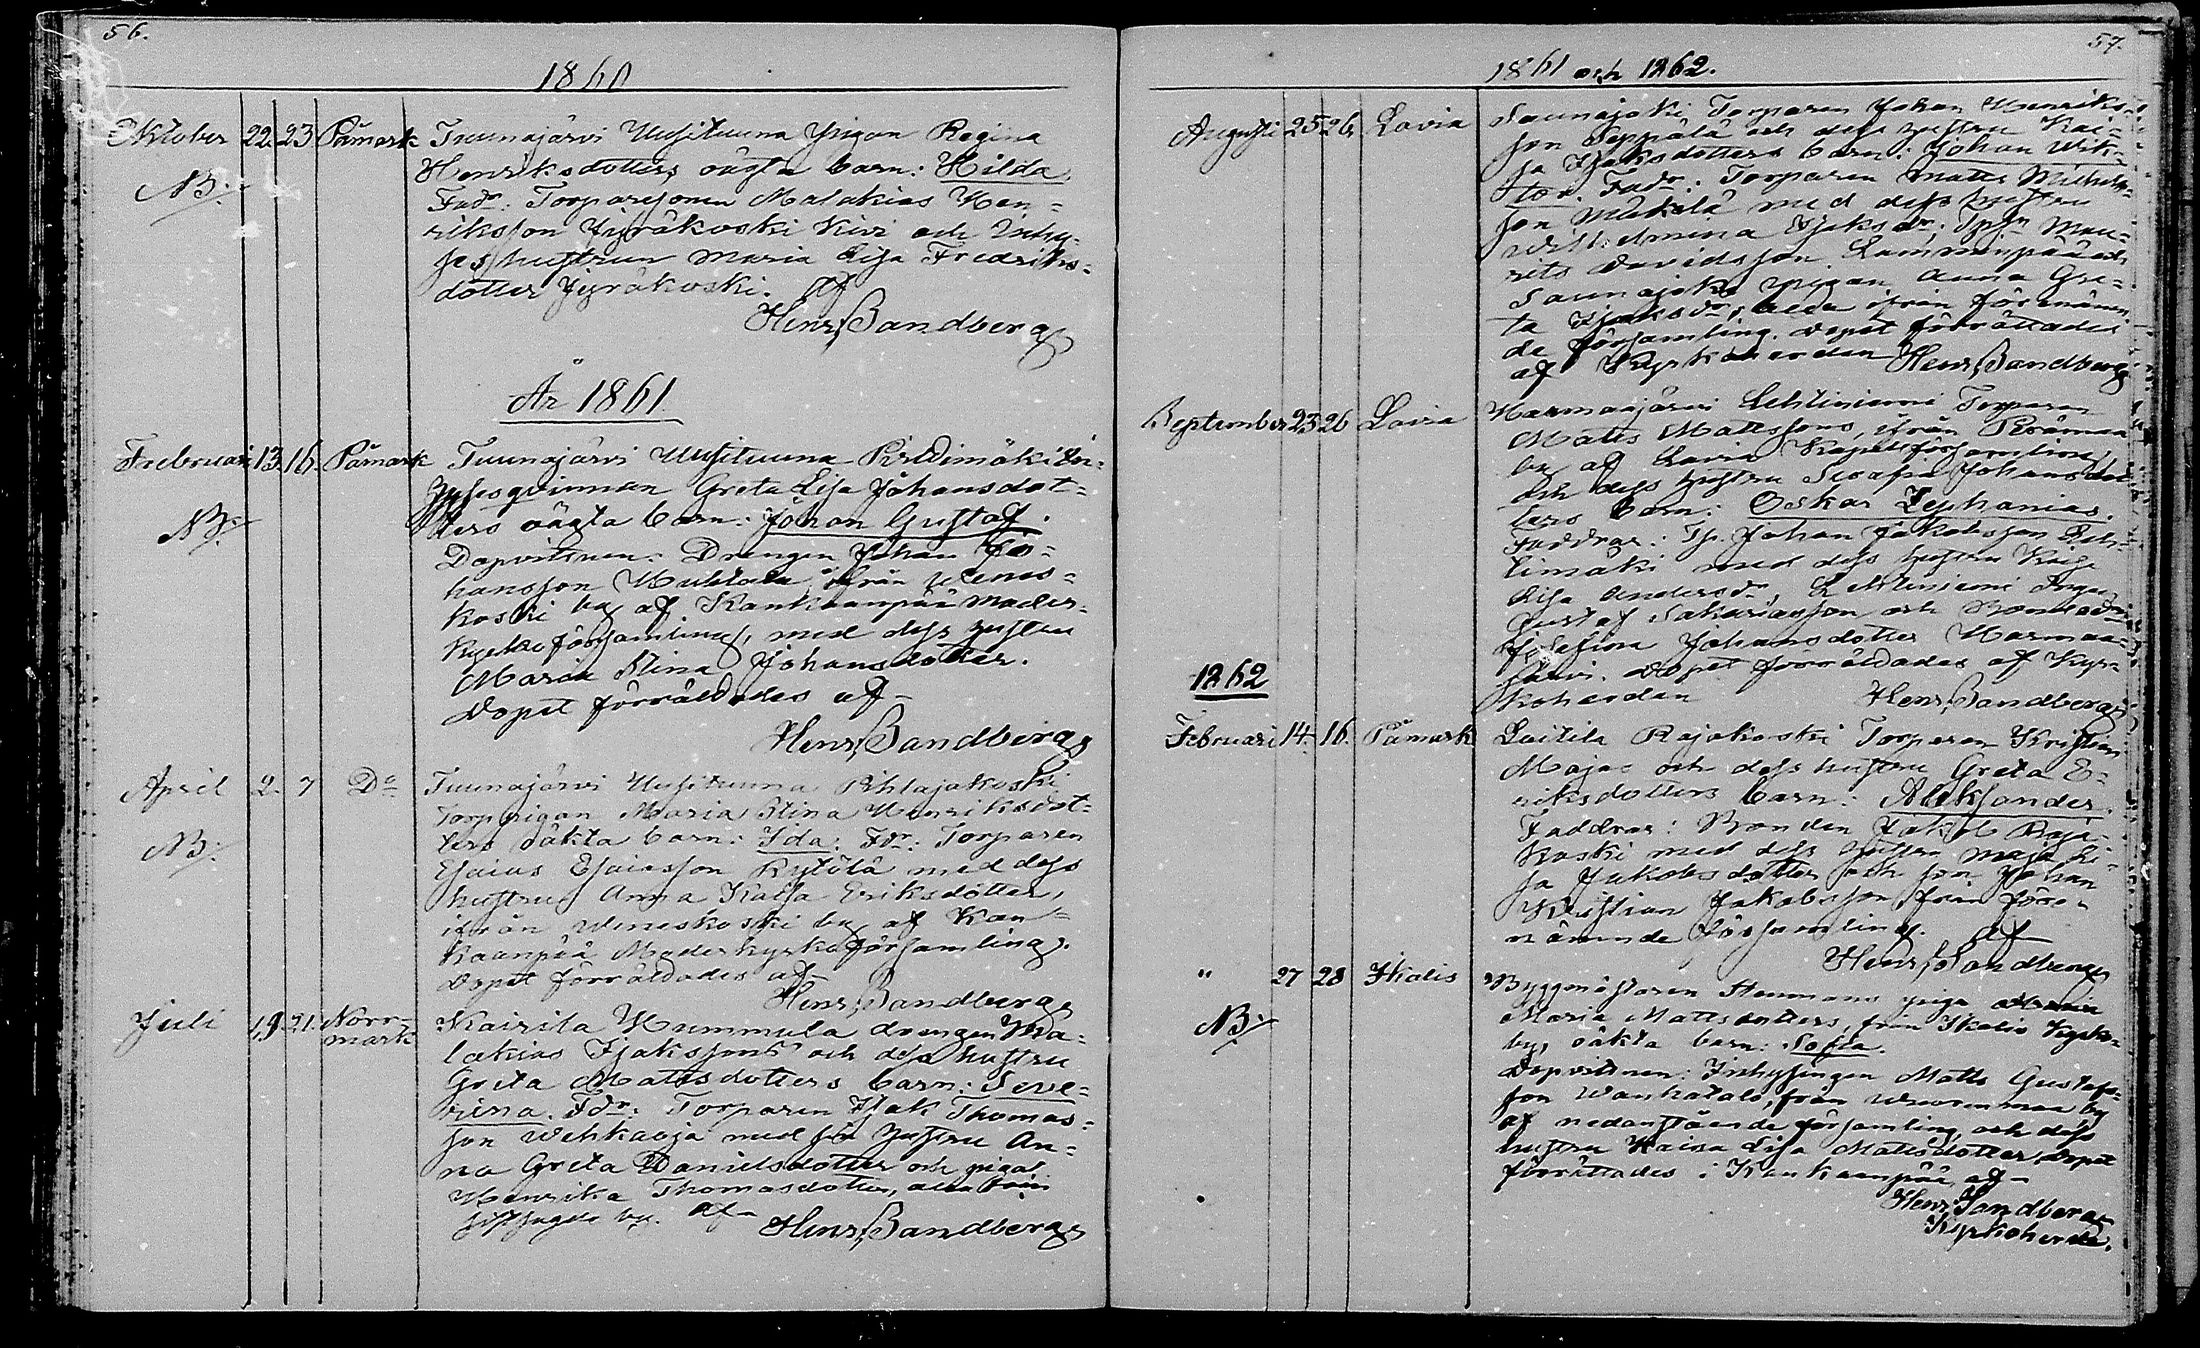 56.
1860
Oktober 22. 23 Påmark Tuunajärvi Uusituuna Pigan Regina
NB: Henriksdotters oägta barn: Hilda.
Fadr: Torparesonen Malakias Hen-
riksson Jyräkoski Kivi och Inhy-
ses hustrun Maria Lisa Fredriks-
dotter Jyräkoski. af
Henr. Sandberg
År 1861.
Februari 13. 16. Påmark Tuunajärvi Uusituuna In-
hysesqvinnan Greta Lisa Johansdot-
NB: ters oägta barn: Johan Gustaf.
Dopvittnen: Drengen Johan Jo-
hansson ifrån Wenes-
koski by af Kankaanpää Moder-
kyrko församling, med dess hustru
Maria Stina Johansdotter.
Dopet förrättades af
Henr. Sandberg
April 2. 7 Do Tuunajärvi Uusituuna Pihlajakoski
Torp pigan Maria Stina Henriksdot-
NB: ters oäkta barn: Ida. Fdr: Torparen
Esaias Esaiasson Kytölä med dess
hustru Anna Kaisa Eriksdotter,
ifrån Weneskoski by af Kan-
kaanpää Moderkyrko församling.
Dopet förrättades af
Henr. Sandberg
Juli 19. 21. Norr-
mark Kairila Hummula drengen Ma-
lakias Isakssons och dess hustru
Greta Mattsdotters barn: Seve-
rina. Fdr: Torparen Isak Thomas-
son Wehkaoja med sin hustru An-
na Greta Danielsdotter och pigan
Henrika Thomasdotter, alla från
sistsagde by. af
Henr. Sandberg
57.
1861 och 1862.
Augusti 25 26. Lavia Saunajoki Torparen Johan Henriks-
son Seppälä och dess hustru Kai-
sa Isaksdotters barn: Johan Wik-
tor. Fadr: Torparen Matts Michels-
son Mäkelä med dess hustru
Wilhelmina Isaksdr, Mau-
rits Davidsson Lammenpää och
Saunajoki pigan Anna Gre-
ta Isaksdr, alla ifrån förenämn-
de församling. Dopet förrättades
af Kyrkoherden Henr. Sandberg
September 23 26 Lavia Harmaajärvi Lehtiniemi Torparen
Matts Mattssons, ifrån
by af Lavia Kapellförsamling
och dess hustru Serafia Johansdot-
ters barn: Oskar Zephanias.
Faddrar: Tp. Johan Jakobsson Leh-
timäki med dess hustru Kaisa
Lisa Andersdr, Lehtiniemi
Gustaf Sakariasson och
Josefina Johansdotter Harmaa-
järvi. Dopet förrättades af Kyr-
koherden Henr. Sandberg
1862
Februari 14. 16. Påmark Laitila Rajakoski Torparen Kristian
Majas och dess hustru Greta E-
riksdotters barn: Aleksander.
Faddrar: Bonden Jakob Raja-
koski med dess hustru Maja Li-
sa Jakobsdotter och son Johan
Kristian Jakobsson, från före-
nämnde församling. af
Henr. Sandberg
" 27 28 Ikalis Byggmästaren Stenmans piga
NB: Maria Mattsdotters, från Ikalis Kyrko-
by, oäkta barn: Sofia.
Dopvittnen: Inhysingen Matts Gustafs-
son Wanhatalo, från by
af nedanstående församling, och dess
hustru Kaisa Lisa Mattsdotter. Dopet
förrättades i Kankaanpää af
Henr. Sandberg
Kyrkoherde.